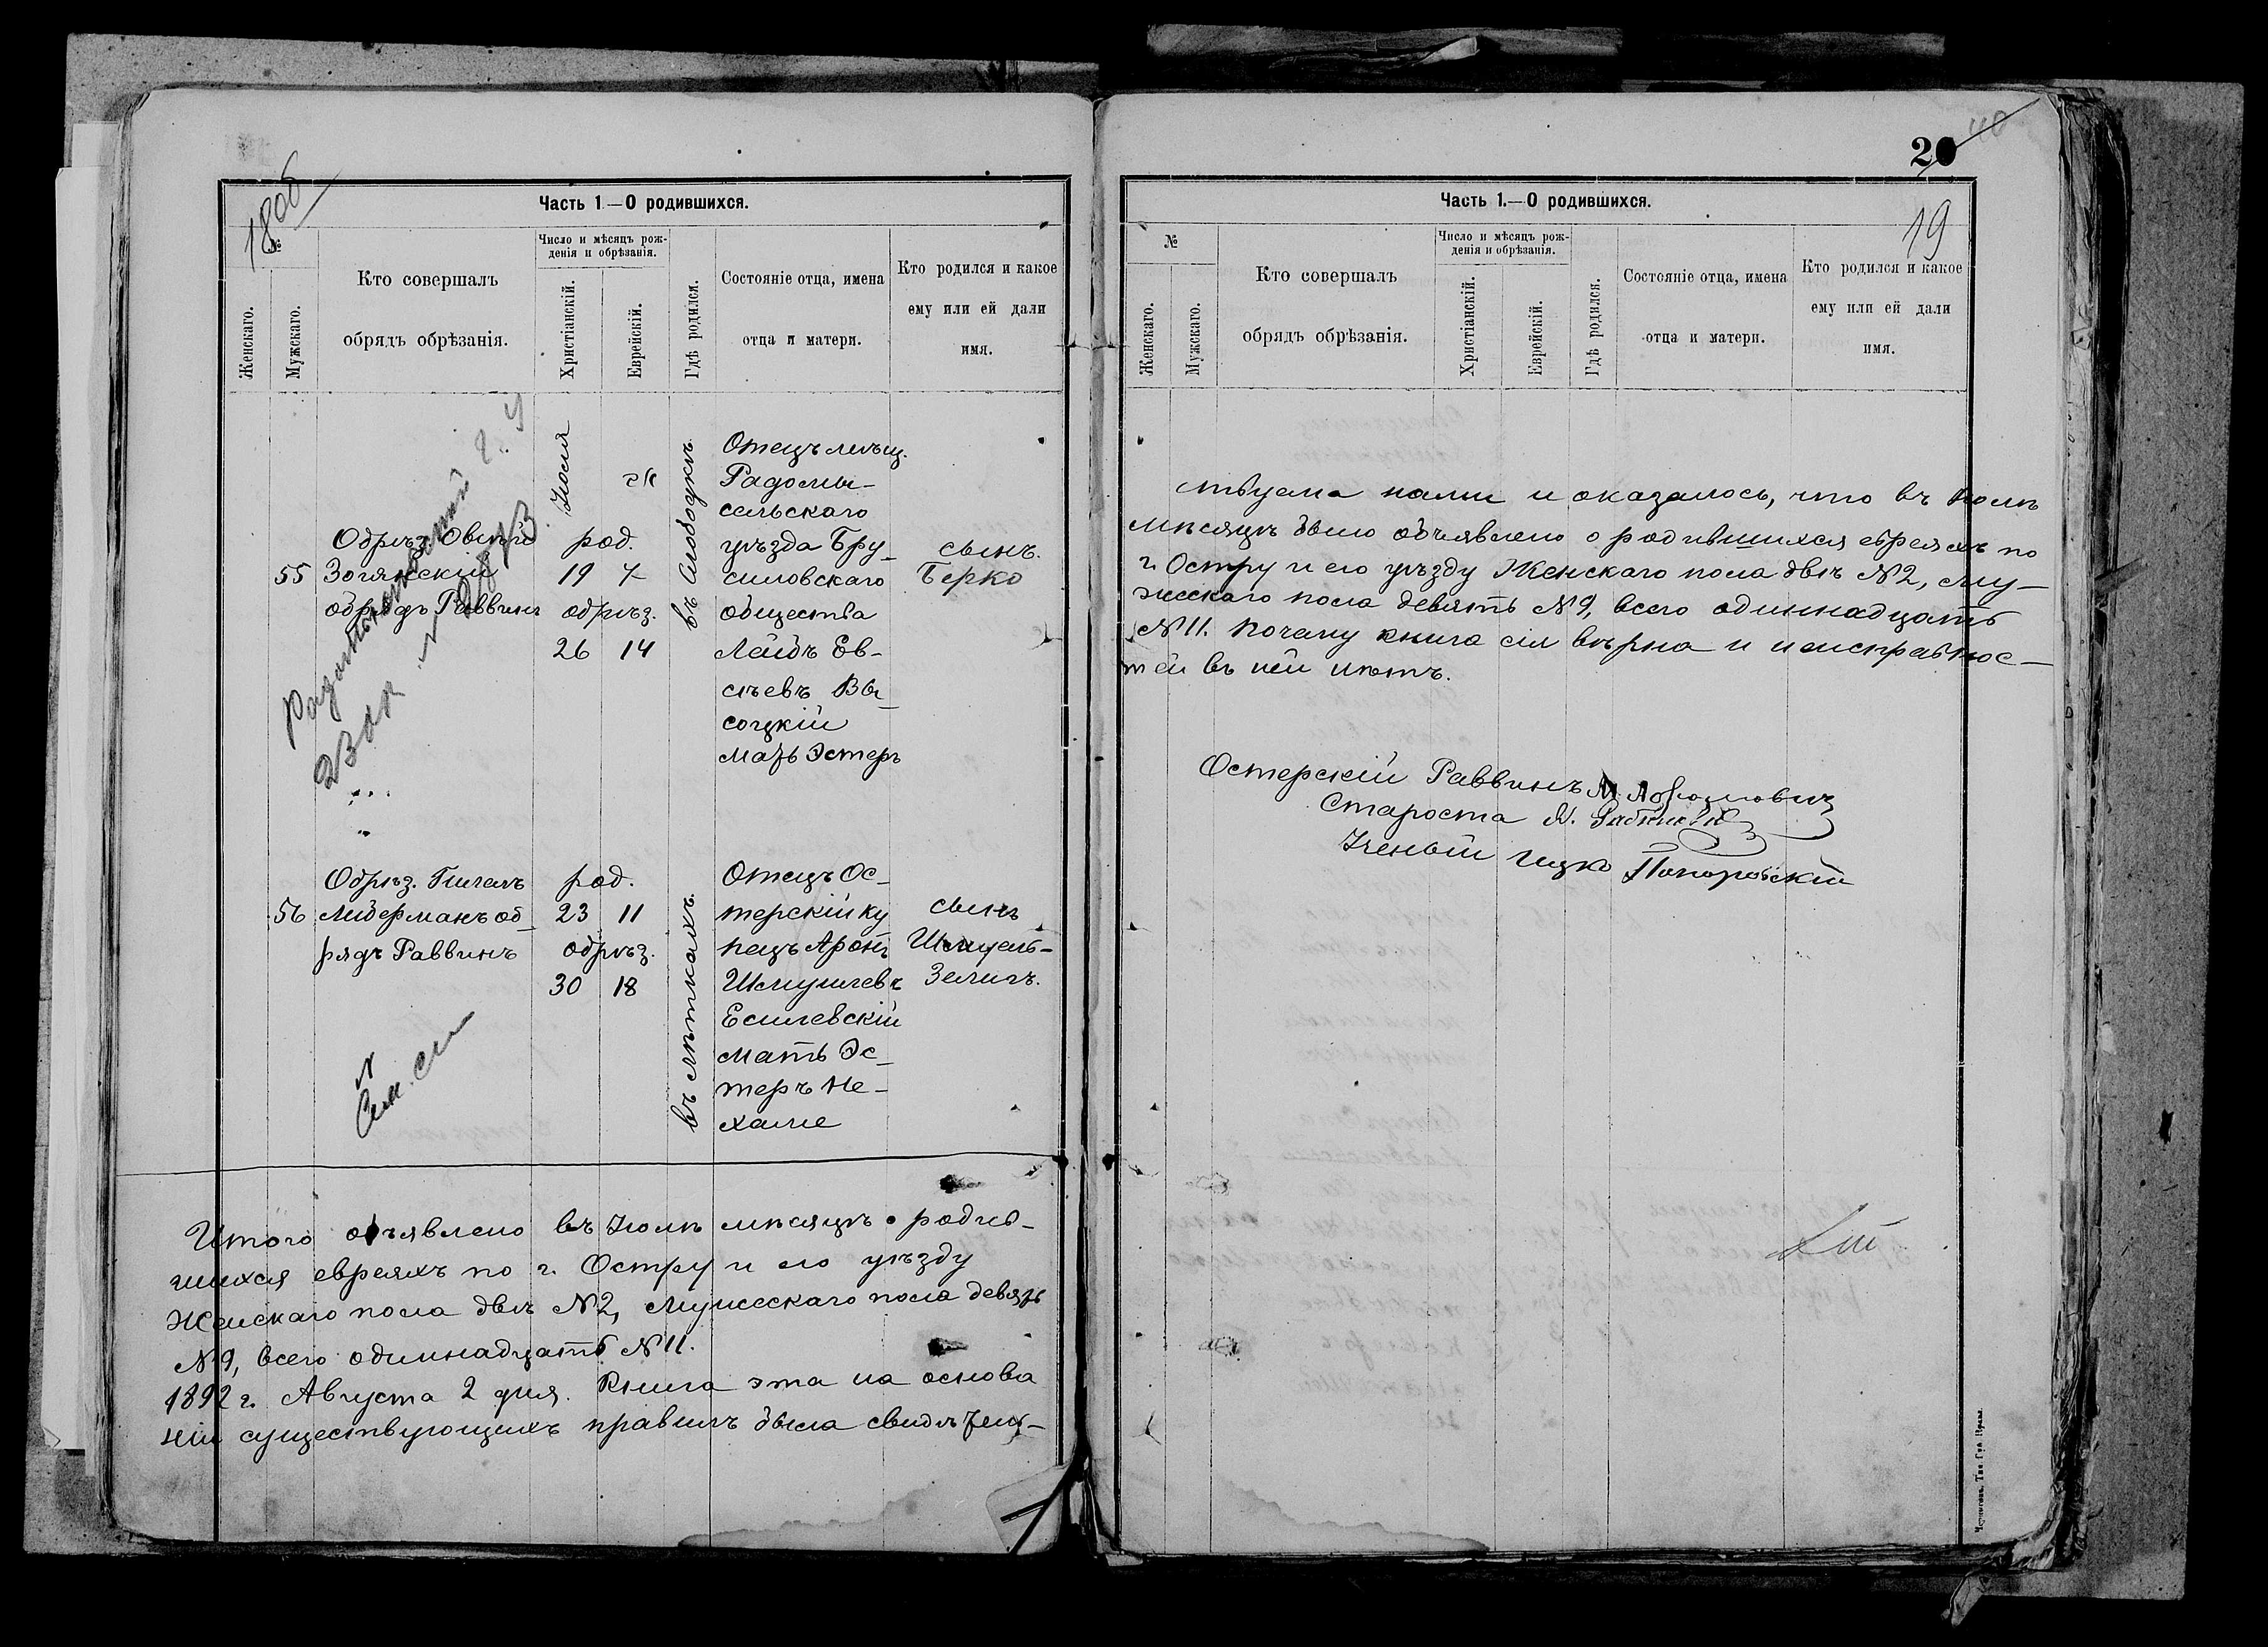 1806
Часть 1.—О родившихся.
№
Женскаго.
Мужскаго.
Кто совершалъ
обрядъ обрѣзанія.
Число и мѣсяцъ рож-
денія и обрѣзанія.
Христіанскій.
Еврейскій.
Гдѣ родился.
Состояніе отца, имена
отца и матери.
Кто родился и какое
ему или ей дали
имя.
55
Обрѣз. Овсѣй
Зогянскій
обрядъ Раввинъ
Іюля
род.
19 7
обрѣз.
26 14
въ Слободкѣ
Отецъ мѣщ.
Радомы-
сельскаго
уѣзда Бру-
силовскаго
общества
Лейбъ Ев-
сѣевъ Вы-
соцкій
мать Эстеръ
сынъ.
Берко
56
Обрѣз.
Либерманъ об-
рядъ Раввинъ
род.
23 11
обрѣз.
30 18
въ Лѣткахъ
Отецъ Ос-
терскій ку
пецъ Аронъ
Шмуилевъ
Есилевскій
мать Эс-
теръ Не-
хаме
сынъ
Шмуель-
Зелигъ.
Итого объявлено въ Іюлѣ мѣсяцѣ о родив-
шихся евреяхъ по г. Остру и его уѣзду
Женскаго пола двѣ №2, мужескаго пола девять
№9, всего одиннадцать №11.
1892 г. Августа 2 дня. Книга эта на основа
ніи существующихъ правилъ была свидѣтель-
20
40
19
Часть 1.—О родившихся.
№
Женскаго.
Мужскаго.
Кто совершалъ
обрядъ обрѣзанія.
Число и мѣсяцъ рож-
денія и обрѣзанія.
Христіанскій.
Еврейскій.
Гдѣ родился.
Состояніе отца, имена
отца и матери.
Кто родился и какое
ему или ей дали
имя.
ствуема нами и оказалось, что въ Іюлѣ
мѣсяцѣ было объявлено о родившихся евреяхъ по
г. Остру и его уѣзду Женскаго пола двѣ №2, му-
жескаго пола девять №9, всего одиннадцать
№11. Почему книга сія вѣрна и неисправнос-
тей въ ней нѣтъ.
Остерскій Раввинъ
Староста
Ученый Ицко Топоровскій
Черниговъ. Тип. Губ. Правл.